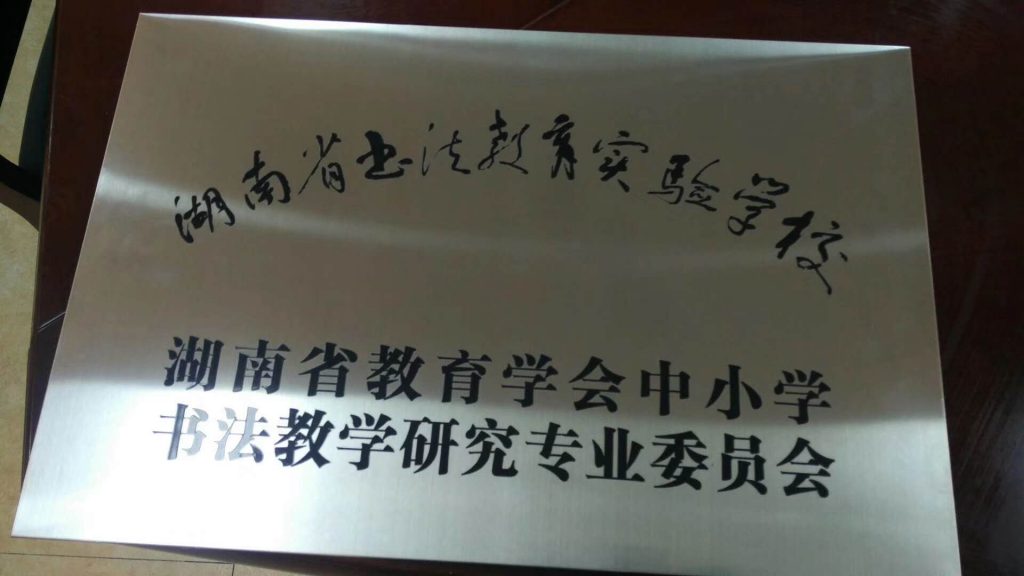 湖南省书法教育实验学校
湖南省教育学会中小学
书法教学研究专业委员会